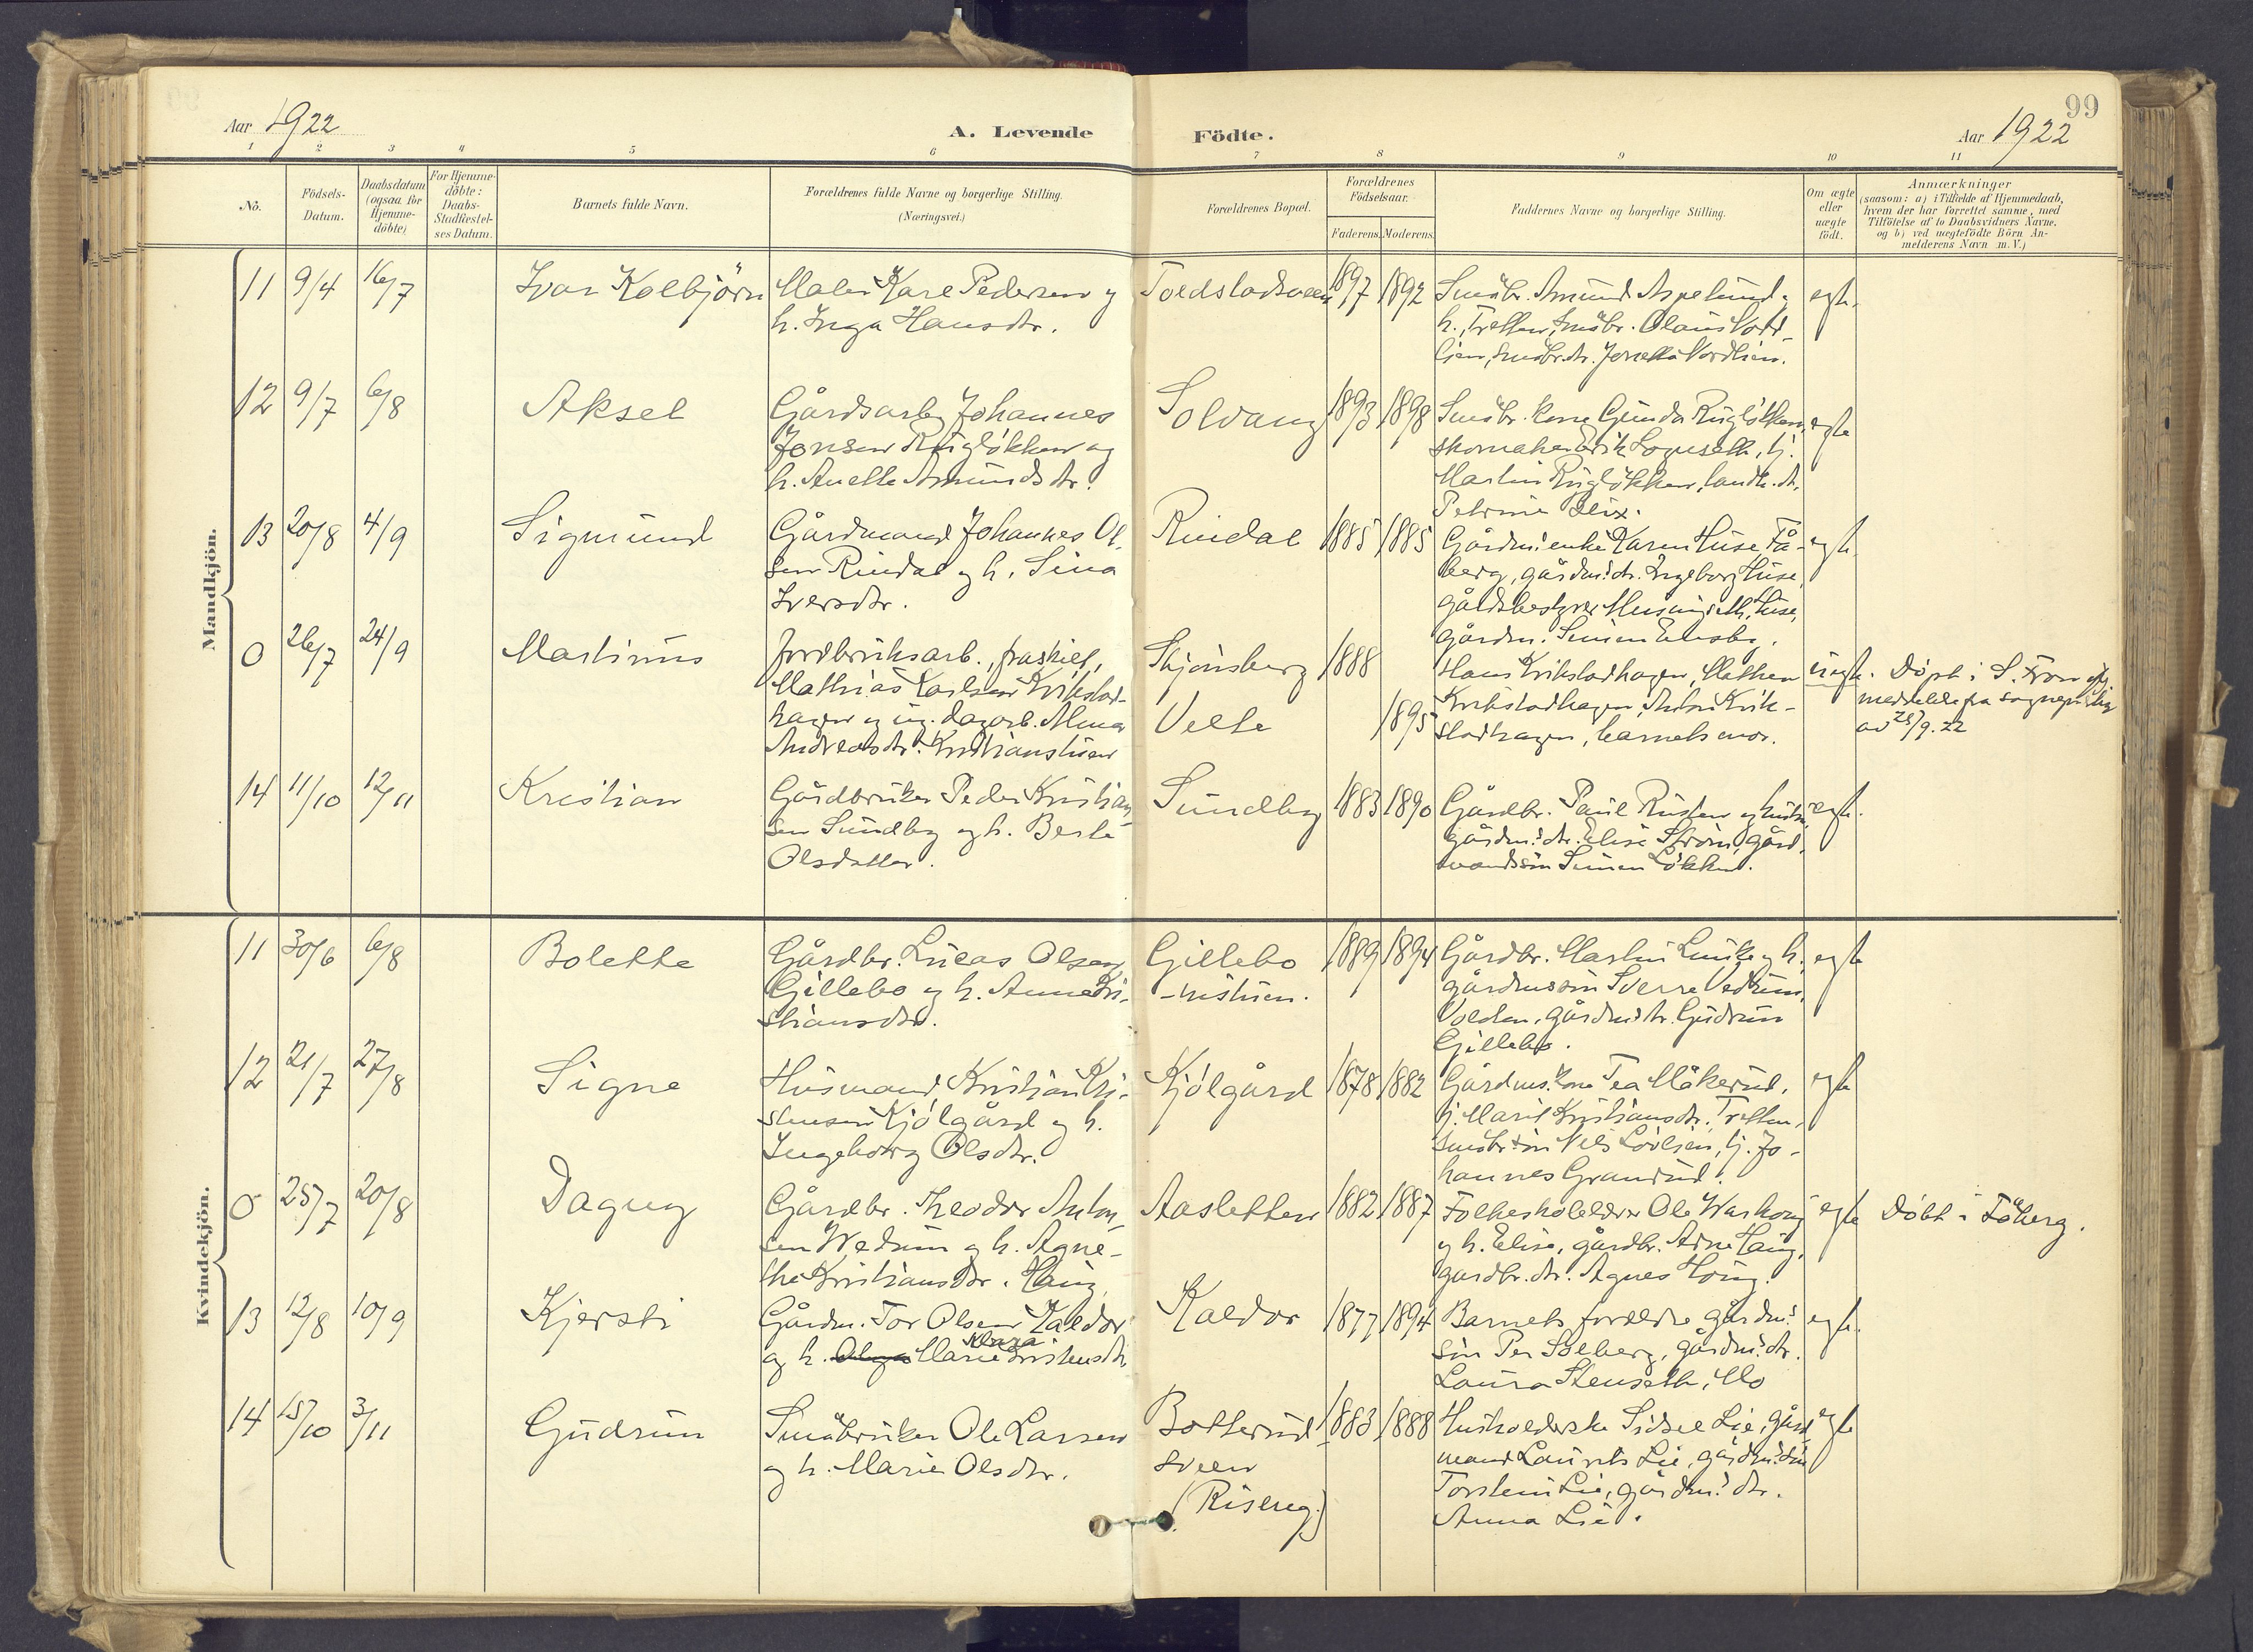 99
Aar 1922
A. Levende
Födte.
Aar 1922
1 2 3 4 5 6 7 8 9 10 11
No.
Födsels-
Datum.
Daabsdatum
(ogsaa for
Hjemme-
döbte)
For Hjemme-
döbte:
Daabs-
Stadfæstel-
ses Datum.
Barnets fulde Navn.
Forældrenes fulde Navne og borgerlige Stilling.
(Næringsvei.)
Forældrenes Bopæl.
Forældrenes
Födselsaar.
Faderens. Moderens.
Faddernes Navne og borgerlige Stilling.
Om ægte
eller
uægte
födt.
Anmærkninger
(saasom: a) i Tilfælde af Hjemmedaab,
hvem der har forrettet samme, med
Tilföielse af to Daabsvidners Navne.
og b) ved uægtefödte Börn An-
melderens Navn m. V.)
Mandkjön.
11 9/4 16/7
Ivar Kolbjörn
Maler Kåre Pedersen og
h. Inga Hansdtr.
1897 1892
Småbr. Amund Aspelund og
h., Tretten, småbr. Olaus Nord-
lien, småbr.dtr. Jonetta Nordlien.
egte.
12 9/7 6/8
Aksel
Gårdsarb. Johannes
Jonsen Ruglökken og
h. Anette Amundsdtr.
Solvang
1893 1898
Småbr. kone Gunda Ruglökken,
skomaker Erik Logneseth, tj.
Martin Ruglökken, landh. dtr.
Petrine Lix.
egte
13 20/8 4/9
Sigmund
Gårdmand Johannes Ol-
sen Rindal og h. Sina
Iversdtr.
Rindal
1885 1885
Gårdm. enke Karen Huse, Få-
berg, gårdm.s dtr. Ingeborg Huse,
gårdsbestyrer Huse,
gårdm. Simen
egte
0 26/7 24/9
Martinus
Jordbruksarb., fraskilt,
Mathias Karlsen Krikstad-
hagen og ug. dagarb. Alma
Andreasdtr. Kristianstuen
Skjönsberg
Velte
1888
1895
Hans Krikstadhagen, Mathea
Krikstadhagen, Anton Krik-
stadhagen, barnets mor.
uegte.
Döpt i S. Fron
meddelelse fra sognepr.
av 25/9. 22
14 11/10 12/11
Kristian
Gårdbruker Peder Kristian-
sen Sundby og h. Berte
Olsdatter.
Sundby
1883 1890
Gårdbr. Paul Rusten og hustru,
gårdm.s dtr. Elise Ström, gård-
mandssön Simen Lökken.
egte.
Kvindekjön.
11 30/6 6/8
Bolette
Gårdbr. Lucas Olsen
Gillebo og h. Anne Kri-
stiansdtr.
Gillebo
-nistuen.
1889 1894
Gårdbr. Martin Lunke og h.,
gårdmssön Sverre Vedum,
Volden, gårdm.s dtr. Gudrun
Gillebo.
egte
12 21/7 27/8
Signe
Husmand Kristian Kri-
stensen Kjölgård og h.
Ingeborg Olsdtr.
Kjölgård
1878 1882
Gårdms. kone Tea Måkerud,
tj. Marit Kristiansdtr. Tretten,
småbr. sön Nils Lövlien, tj. Jo-
hannes Granrud.
egte
0 25/7 20/8
Dagny
Gårdbr. Theodor Anton-
sen Wedum og h. Agne-
the Kristiansdtr. Haug
Aasletten
1882 1887
Folkeskolelærer Ole
og h. Elise, gårdbr. Arne Haug,
gårdbr. dtr. Agnes Haug.
egte
Döbt i Fåberg.
13 12/8 10/9
Kjersti
Gårdm. Tor Olsen Kaldor
og h. Olga Marie Klara Kristensdtr.
Kaldor
1877 1894
Barnets foreldre, gårdm.s
sön Per Solberg, gårdm.s dtr.
Laura Stenseth, Mo
egte.
14 15/10 3/11
Gudrun
Småbruker Ole Larsen
og h. Marie Olsdtr.
Botterud
sveen
(Riseng.)
1883 1888
Husholderske Sidsel Lie, gård-
mand Laurits Lie, gårdm.s sön
Torstein Lie, gårdm.s dtr.
Anna Lie.
egte